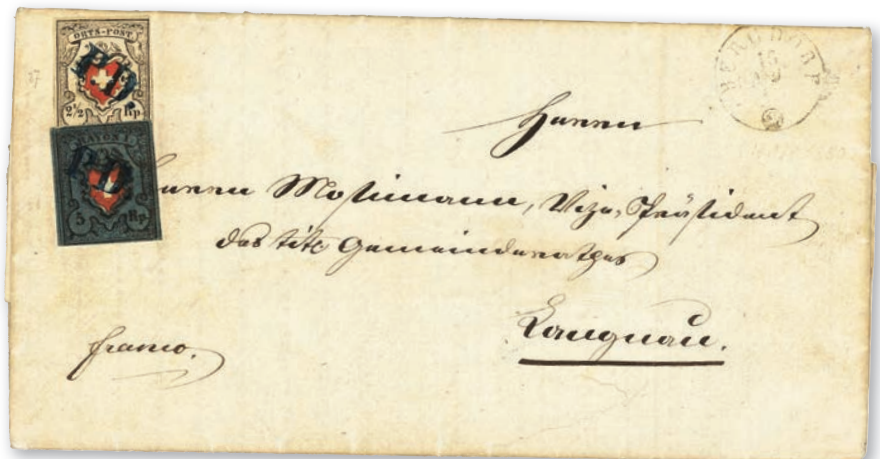 ORTS-POST
P.P.
2½ Rp
RAYON I
P.P.
5 Rp.
BURGDORF
Herren
Herren Mosimann, Vize-Präsident
des tit. Gemeinderathes
Langnau.
franco.